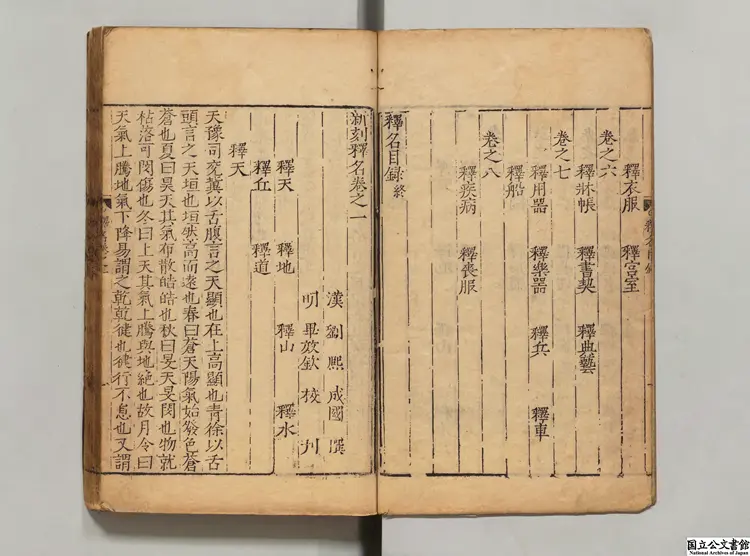 釋衣服 釋宮室
卷之六
釋牀帳 釋書契 釋典藝
卷之七
釋用器 釋樂器 釋兵 釋車
釋船
卷之八
釋疾病 釋喪服
釋名目錄終
新刻釋名卷之一
漢 劉熙成國 撰
明 畢效欽 校刋
釋天 釋地 釋山 釋水
釋丘 釋道
釋天
天豫司兖冀以舌腹言之天顯也在上高顯也青徐以舌
頭言之天垣也垣然高而遠也春曰蒼天陽氣始發色蒼
蒼也夏曰昊天其氣布散皓皓也秋曰旻天旻閔也物就
枯落可閔傷也冬曰上天其氣上騰與地絶也故月令曰
天氣上騰地氣下降易謂之乾乾健也健行不息也又謂
国立公文書館
National Archives of Japan